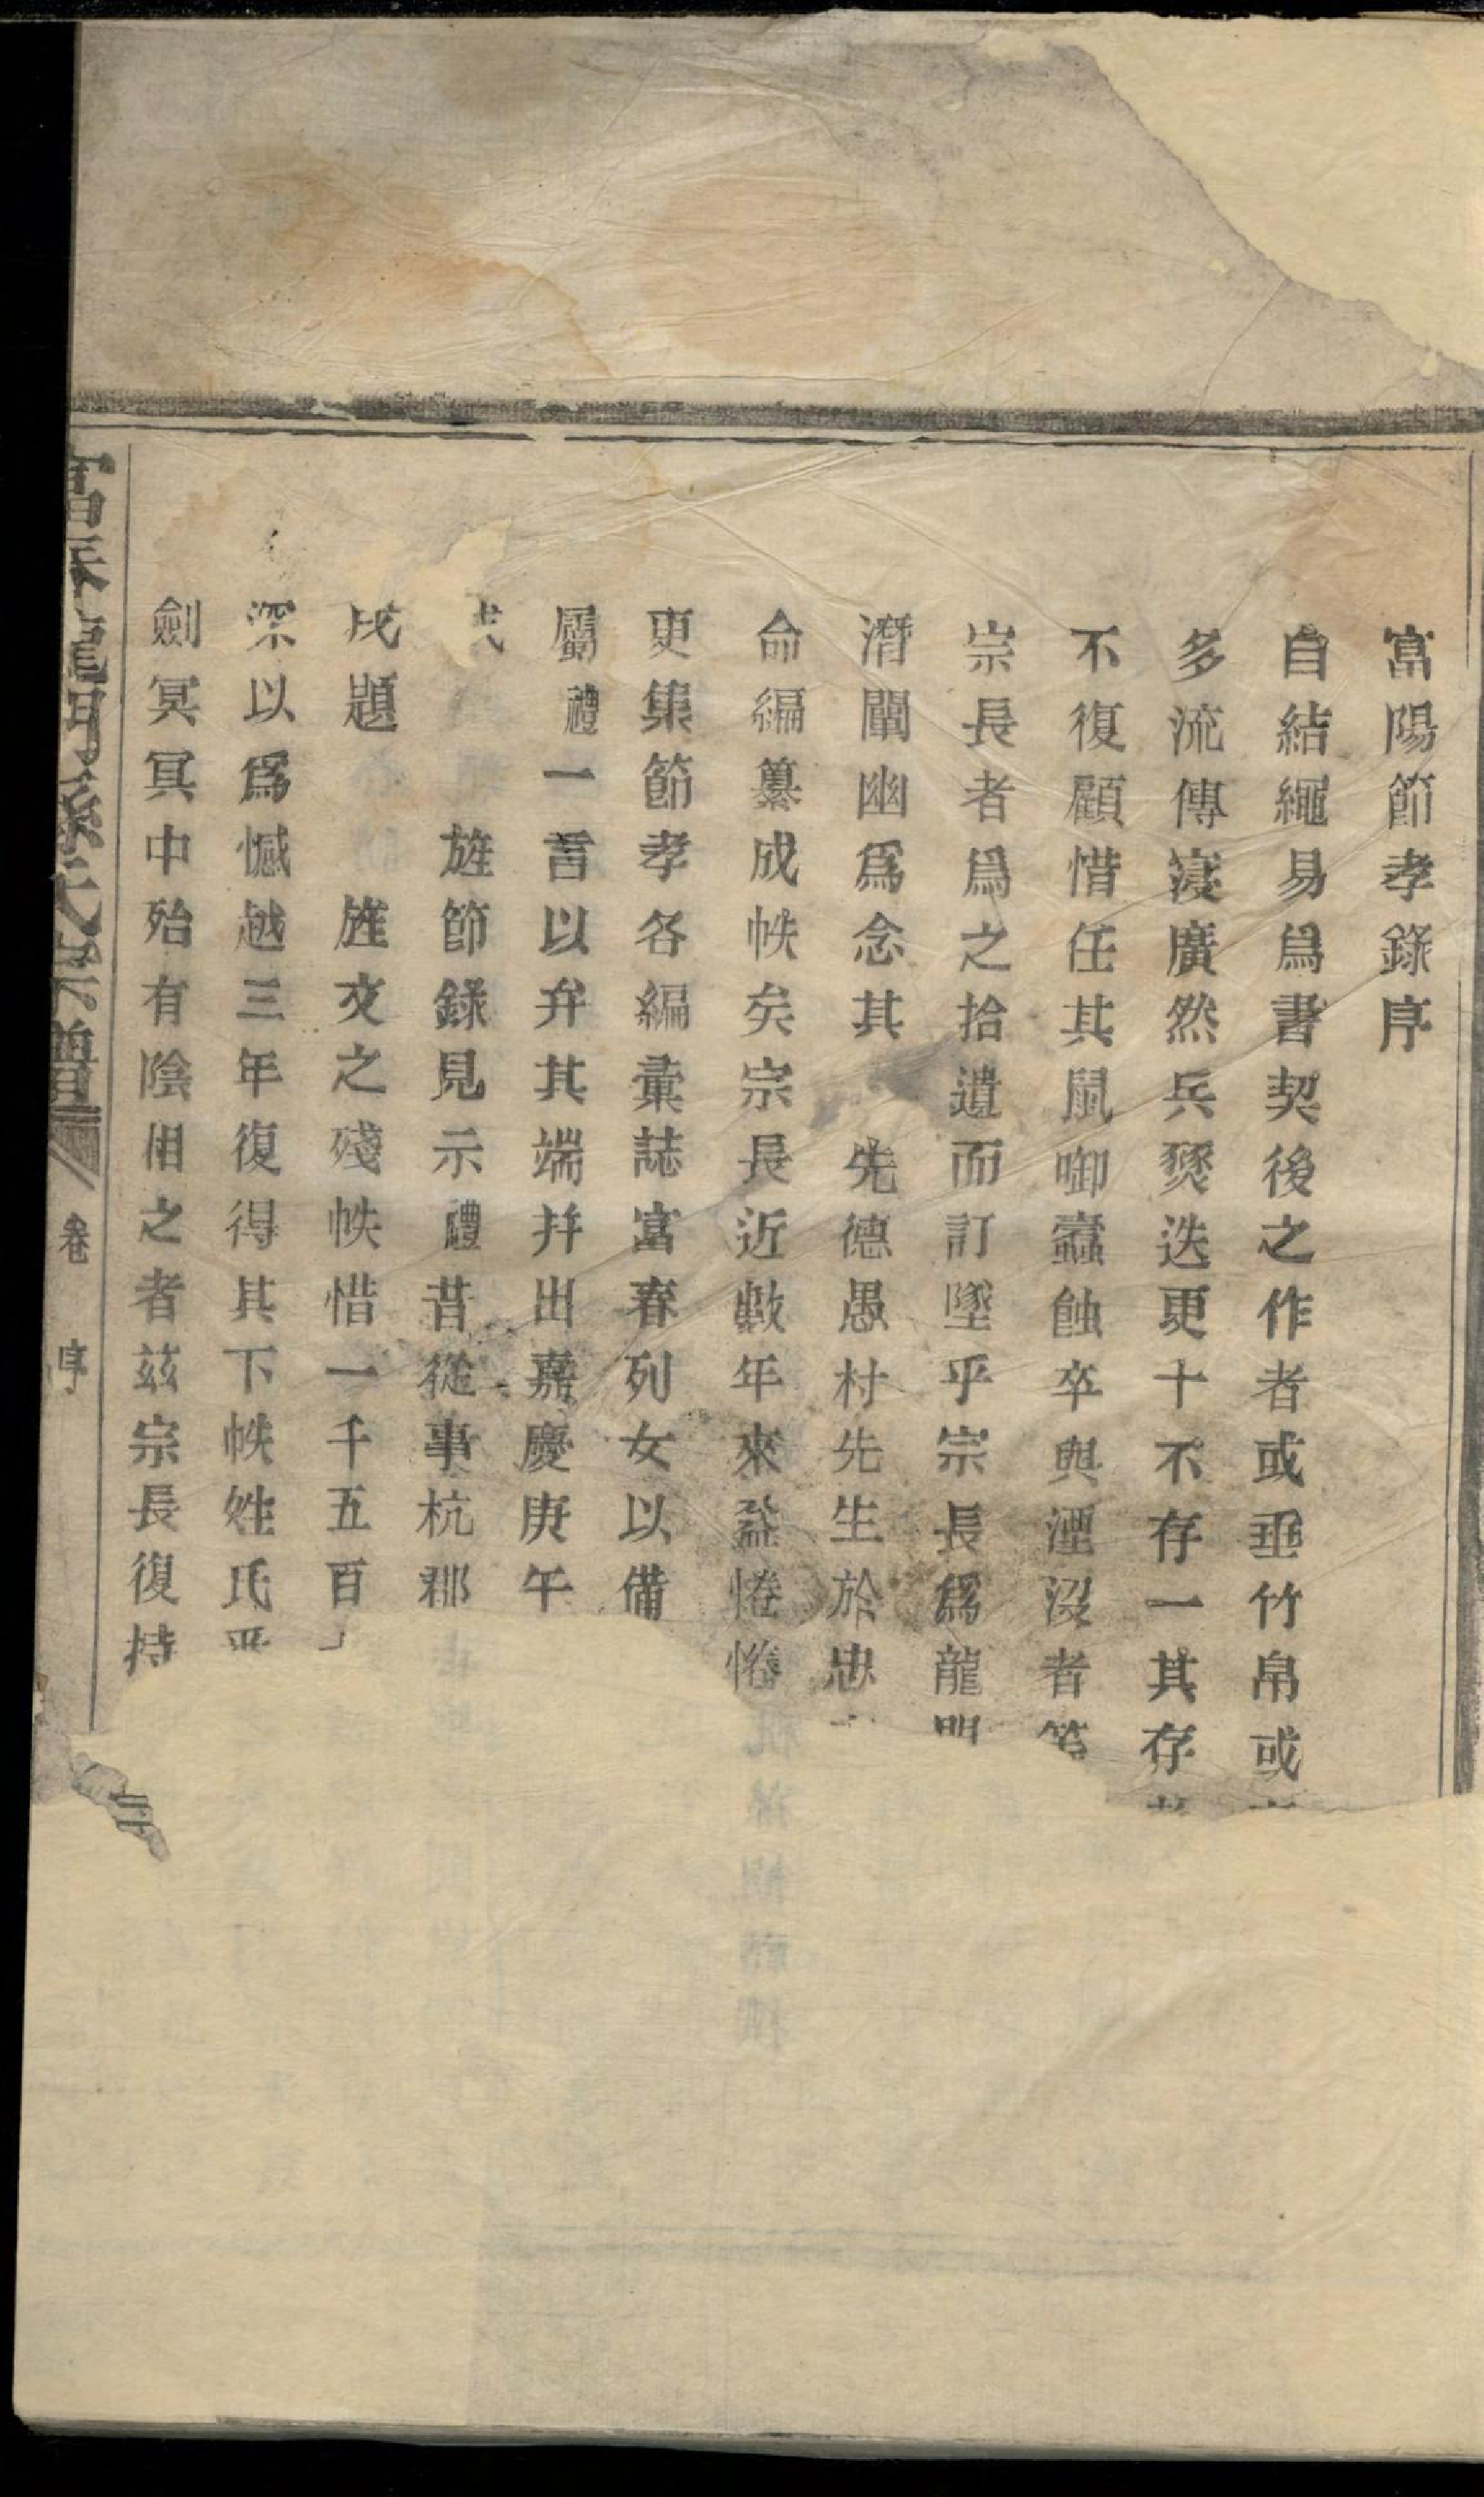 富陽節孝錄序
自結繩易爲書契後之作者或垂竹帛或
多流傳寖廣然兵燹迭更十不存一其存
不復顧惜任其鼠啣蠹蝕卒與湮沒者等
宗長者爲之拾遺而訂墜乎宗長爲龍門
潛闡幽爲念其 先德愚村先生於忠
命編纂成帙矣宗長近數年來益惓惓
更集節孝各編彙誌富春列女以備
屬禮一言以弁其端并出嘉慶庚午
旌節錄見示禮昔從事杭郡
戌題 旌文之殘帙惜一千五百
深以爲憾越三年復得其下帙姓氏
劍冥冥中殆有陰相之者茲宗長復持
富春龍門孫氏宗譜 卷 序 二